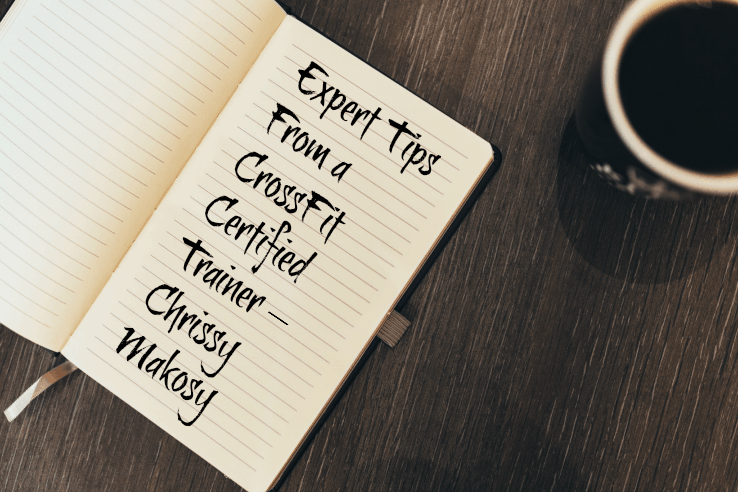 Expert Tips
From a
CrossFit
Certified
Trainer –
Chrissy
Makosy